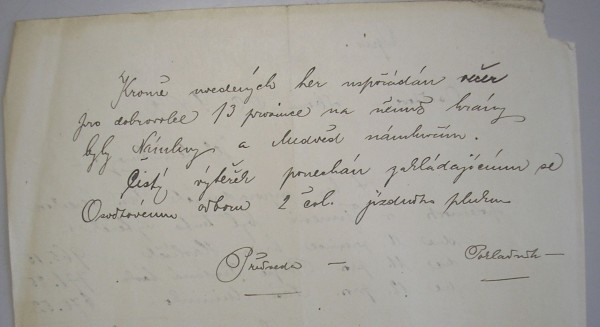 Kromě uvedených her uspořádán večer
pro dobrovolce 13 prosince na němž hrány
byly Námluvy a Medvěd námluvčím.
Čistý výtěžek ponechán zakládajícímu se
odboru 2 čsl. jízdního pluku
Předseda — Pokladník —